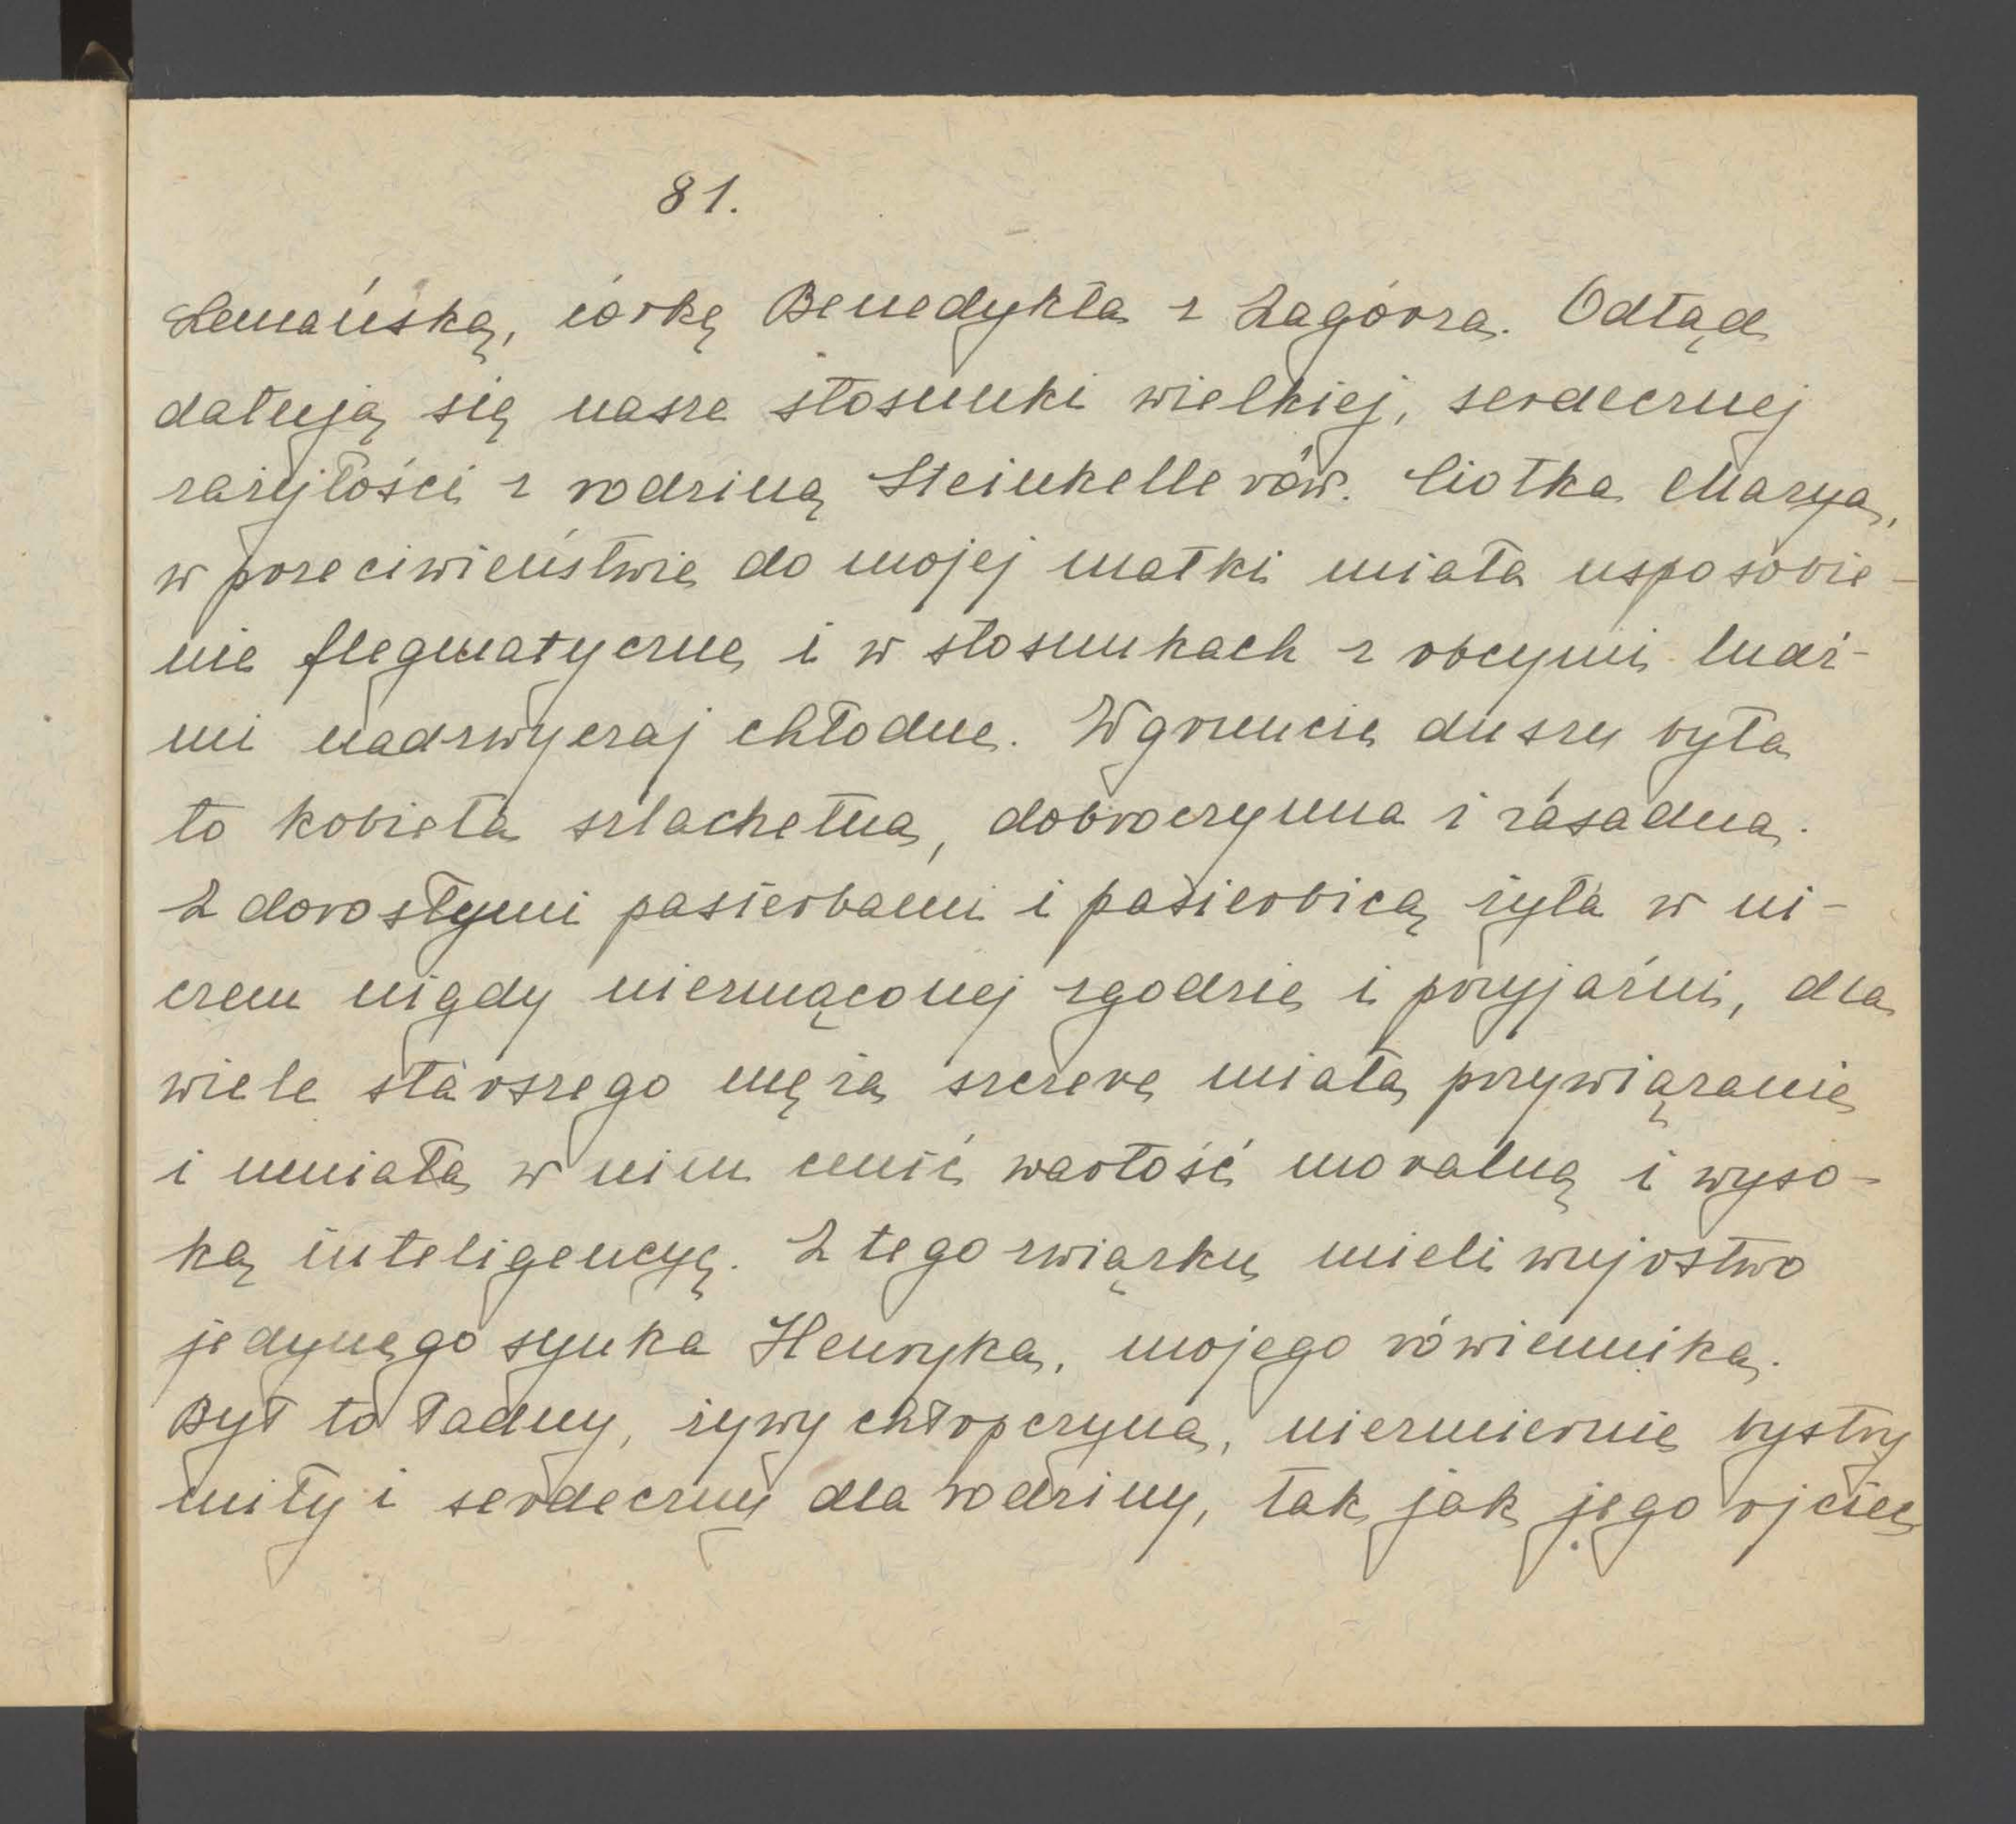 81.
Lemańską, córkę Benedykta z Zagórza. Odtąd
datują się nasze stosunki wielkiej, serdecznej
zażyłości z rodziną Steinkellerów. Ciotka Marya,
w przeciwieństwie do mojej matki miała usposobie-
nie flegmatyczne i w stosunkach z obcymi ludź-
mi nadzwyczaj chłodne. W gruncie duszy była
to kobieta szlachetna, dobroczynna i zasadna.
Z dorosłymi pasierbami i pasierbicą żyła w ni-
czem nigdy niezmąconej zgodzie i przyjaźni, dla
wiele starszego męża szczere miała przywiązanie
i umiała w nim cenić wartość moralną i wyso-
ką inteligencyę. Z tego związku mieli wujostwo
jedynego synka Henryka, mojego rówiennika.
Był to ładny, żywy chłopczyna, niezmiernie bystry
miły i serdeczny dla rodziny, tak jak jego ojciec